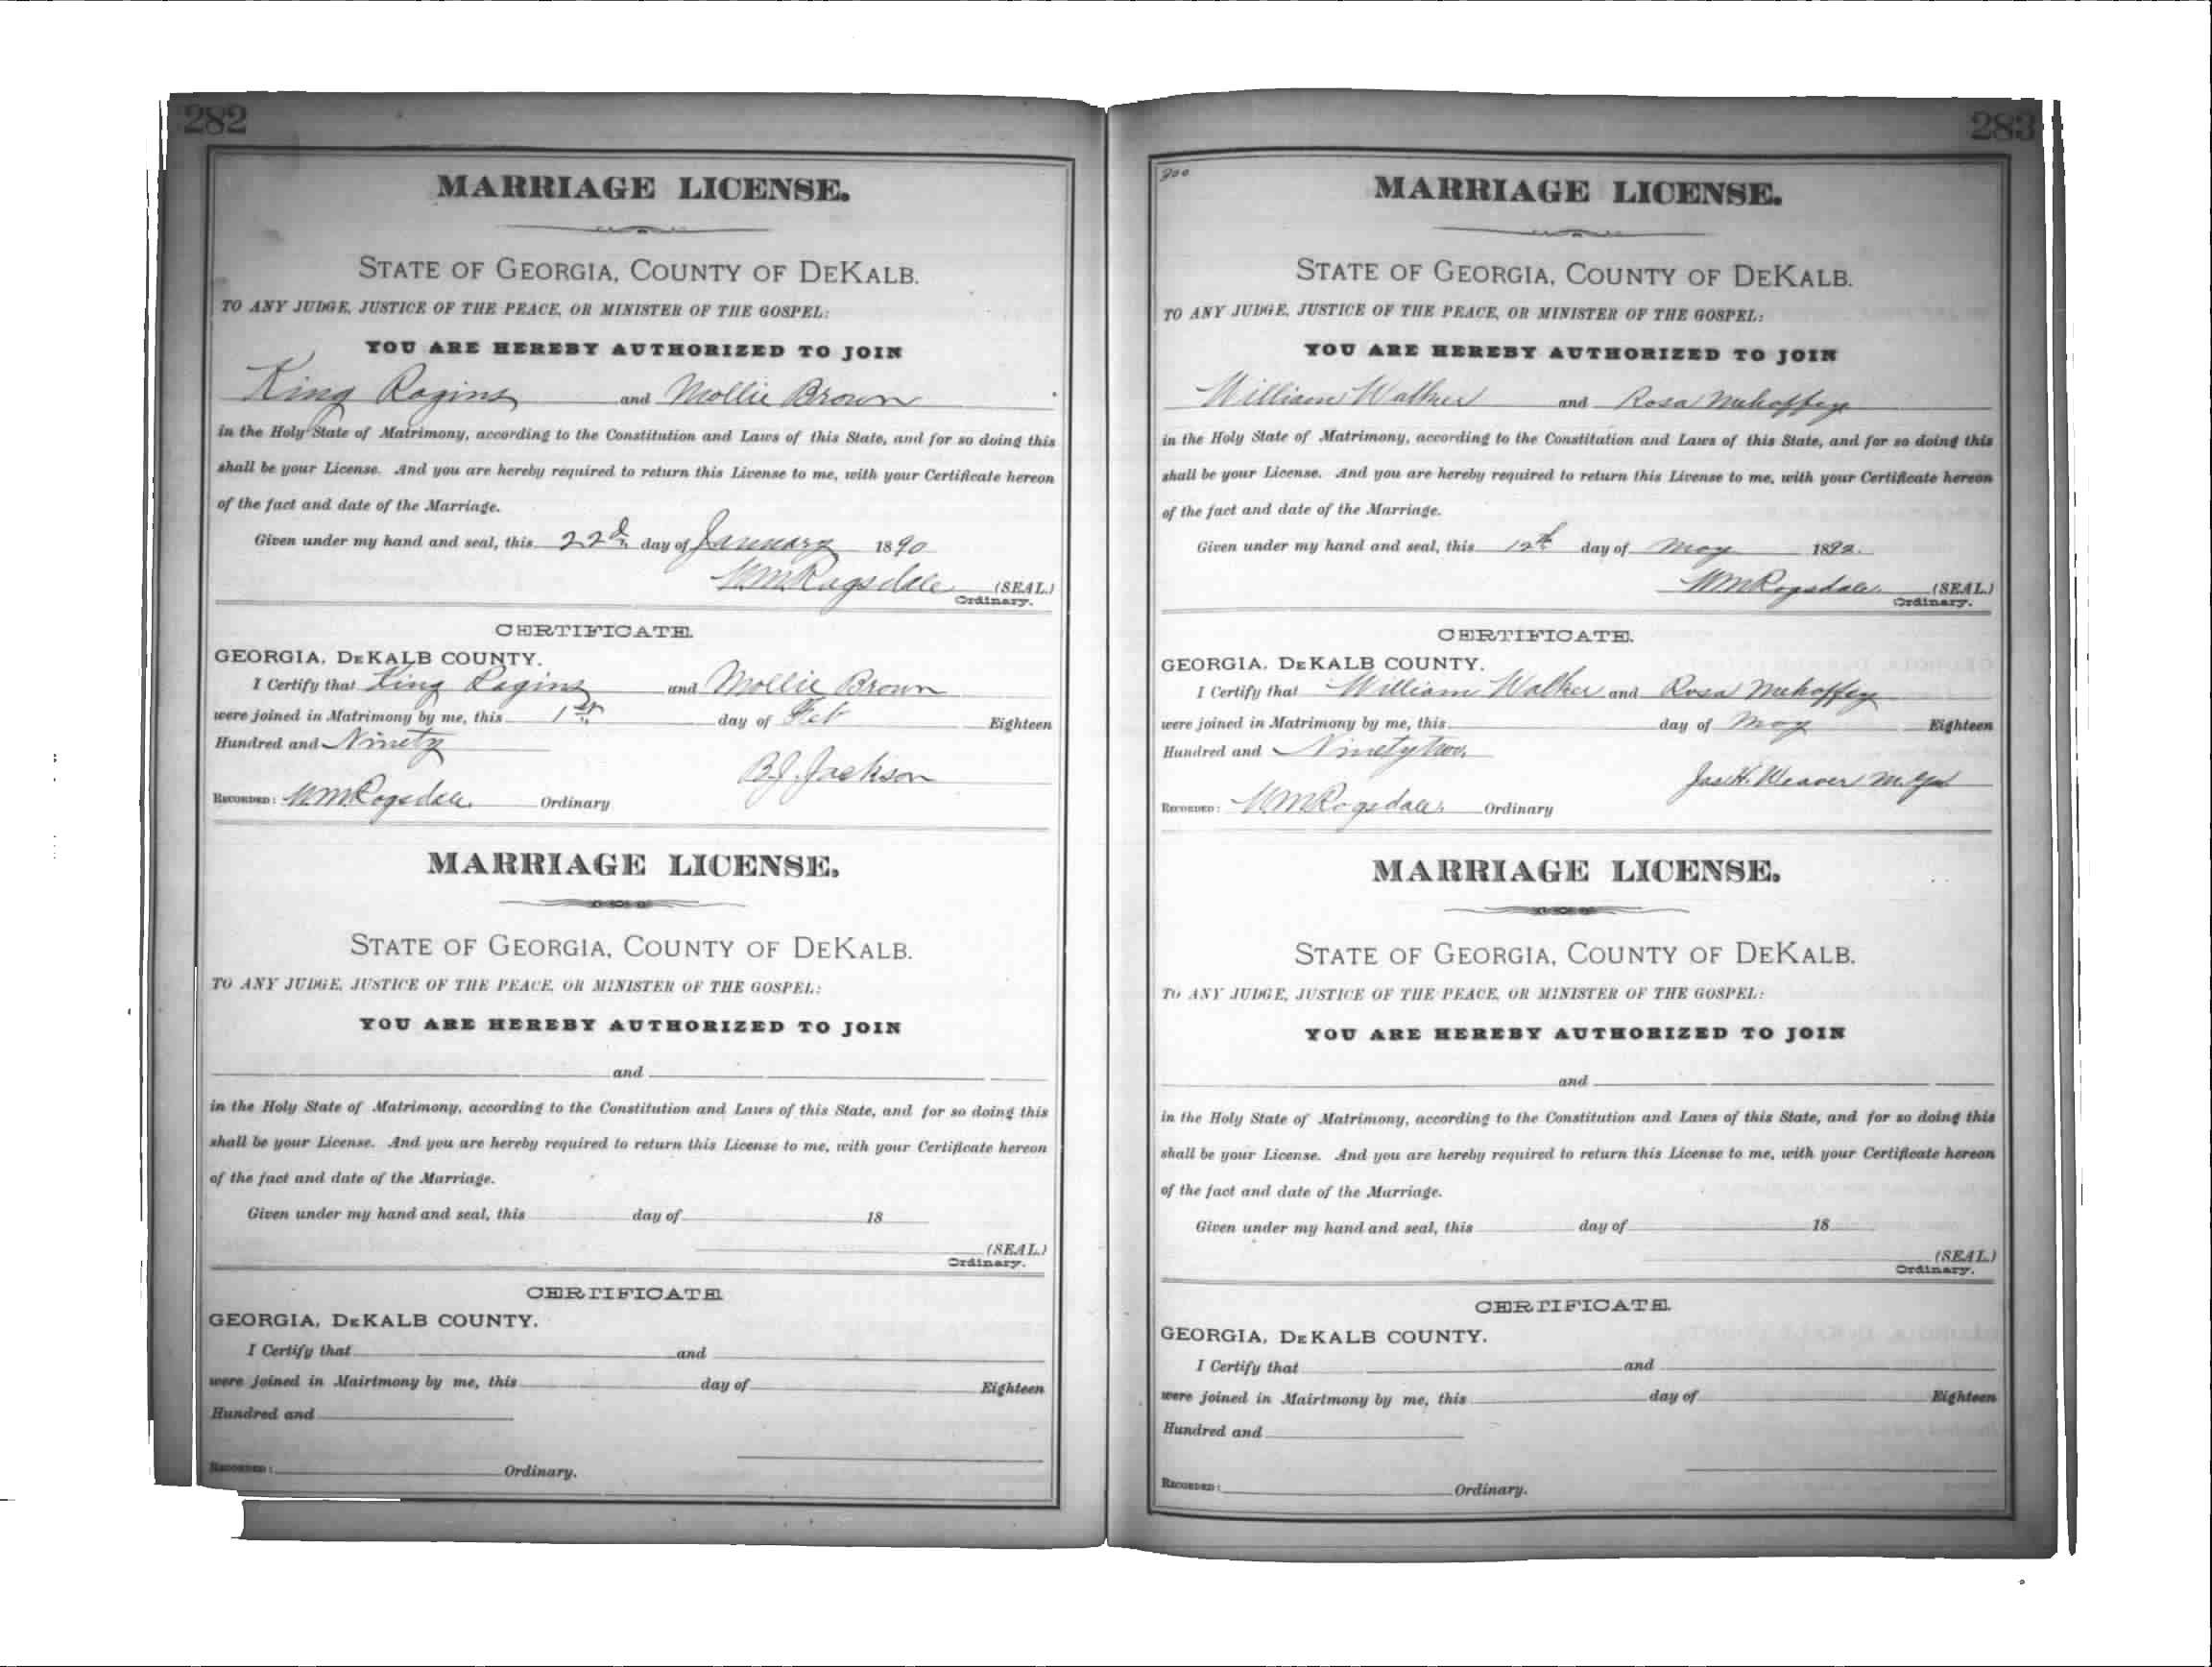 282
MARRIAGE LICENSE.
STATE OF GEORGIA, COUNTY OF DEKALB.
TO ANY JUDGE, JUSTICE OF THE PEACE, OR MINISTER OF THE GOSPEL:
YOU ARE HEREBY AUTHORIZED TO JOIN
King Ragins and Mollie Brown
in the Holy State of Matrimony, according to the Constitution and Laws of this State, and for so doing this
shall be your License. And you are hereby required to return this License to me, with your Certificate hereon
of the fact and date of the Marriage.
Given under my hand and seal, this 22d day of January 1890
W.M. Ragsdale (SEAL.)
Ordinary.
CERTIFICATE.
GEORGIA, DEKALB COUNTY.
I Certify that King Ragins and Mollie Brown
were joined in Matrimony by me, this 1st day of Feb Eighteen
Hundred and Ninety
B.J. Jackson
RECORDED: W.M. Ragsdale Ordinary
MARRIAGE LICENSE.
STATE OF GEORGIA, COUNTY OF DEKALB.
TO ANY JUDGE, JUSTICE OF THE PEACE, OR MINISTER OF THE GOSPEL:
YOU ARE HEREBY AUTHORIZED TO JOIN
and
in the Holy State of Matrimony, according to the Constitution and Laws of this State, and for so doing this
shall be your License. And you are hereby required to return this License to me, with your Certificate hereon
of the fact and date of the Marriage.
Given under my hand and seal, this day of 18
(SEAL.)
Ordinary.
CERTIFICATE
GEORGIA, DEKALB COUNTY.
I Certify that and
were joined in Mairtmony by me, this day of Eighteen
Hundred and
RECORDED: Ordinary.
283
300
MARRIAGE LICENSE.
STATE OF GEORGIA, COUNTY OF DEKALB.
TO ANY JUDGE, JUSTICE OF THE PEACE, OR MINISTER OF THE GOSPEL:
YOU ARE HEREBY AUTHORIZED TO JOIN
William Walker and Rosa
in the Holy State of Matrimony, according to the Constitution and Laws of this State, and for so doing this
shall be your License. And you are hereby required to return this License to me, with your Certificate hereon
of the fact and date of the Marriage.
Given under my hand and seal, this 12th day of May 1892.
W M Ragsdale (SEAL.)
Ordinary.
CERTIFICATE.
GEORGIA, DEKALB COUNTY.
I Certify that William Walker and Rosa
were joined in Matrimony by me, this day of May Eighteen
Hundred and Ninety two.
Jas H. Weaver
RECORDED: W M Ragsdale Ordinary
MARRIAGE LICENSE.
STATE OF GEORGIA, COUNTY OF DEKALB.
TO ANY JUDGE, JUSTICE OF THE PEACE, OR MINISTER OF THE GOSPEL:
YOU ARE HEREBY AUTHORIZED TO JOIN
and
in the Holy State of Matrimony, according to the Constitution and Laws of this State, and for so doing this
shall be your License. And you are hereby required to return this License to me, with your Certificate hereon
of the fact and date of the Marriage.
Given under my hand and seal, this day of 18
(SEAL.)
Ordinary.
CERTIFICATE.
GEORGIA, DEKALB COUNTY.
I Certify that and
were joined in Mairtmony by me, this day of Eighteen
Hundred and
RECORDED: Ordinary.